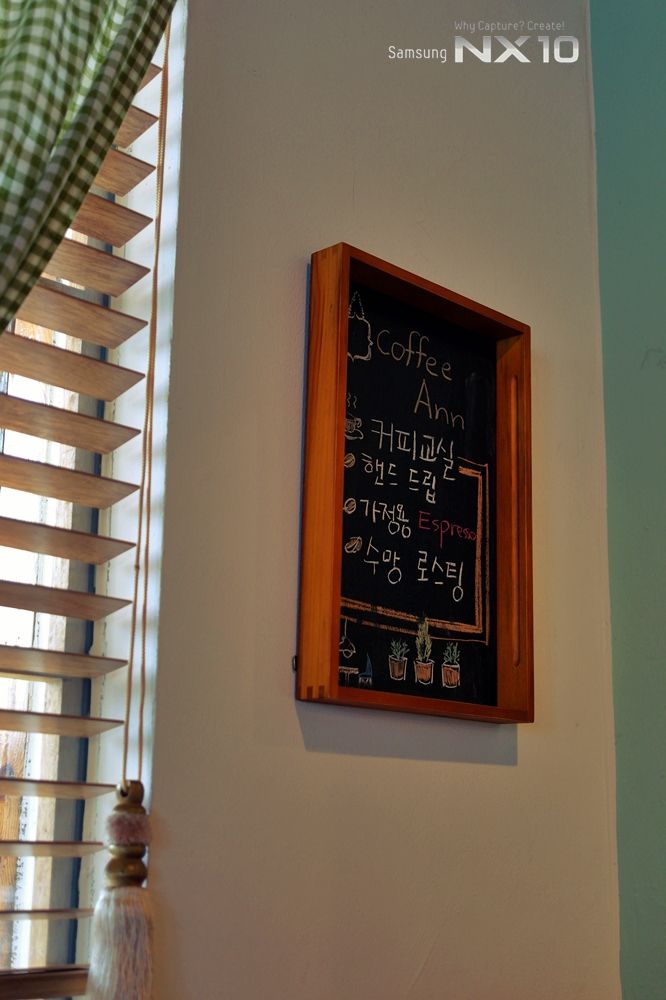 Why Capture? Create!
Samsung NX10
Coffee
Ann
커피교실
핸드 드립
가정용 Espresso
수망 로스팅